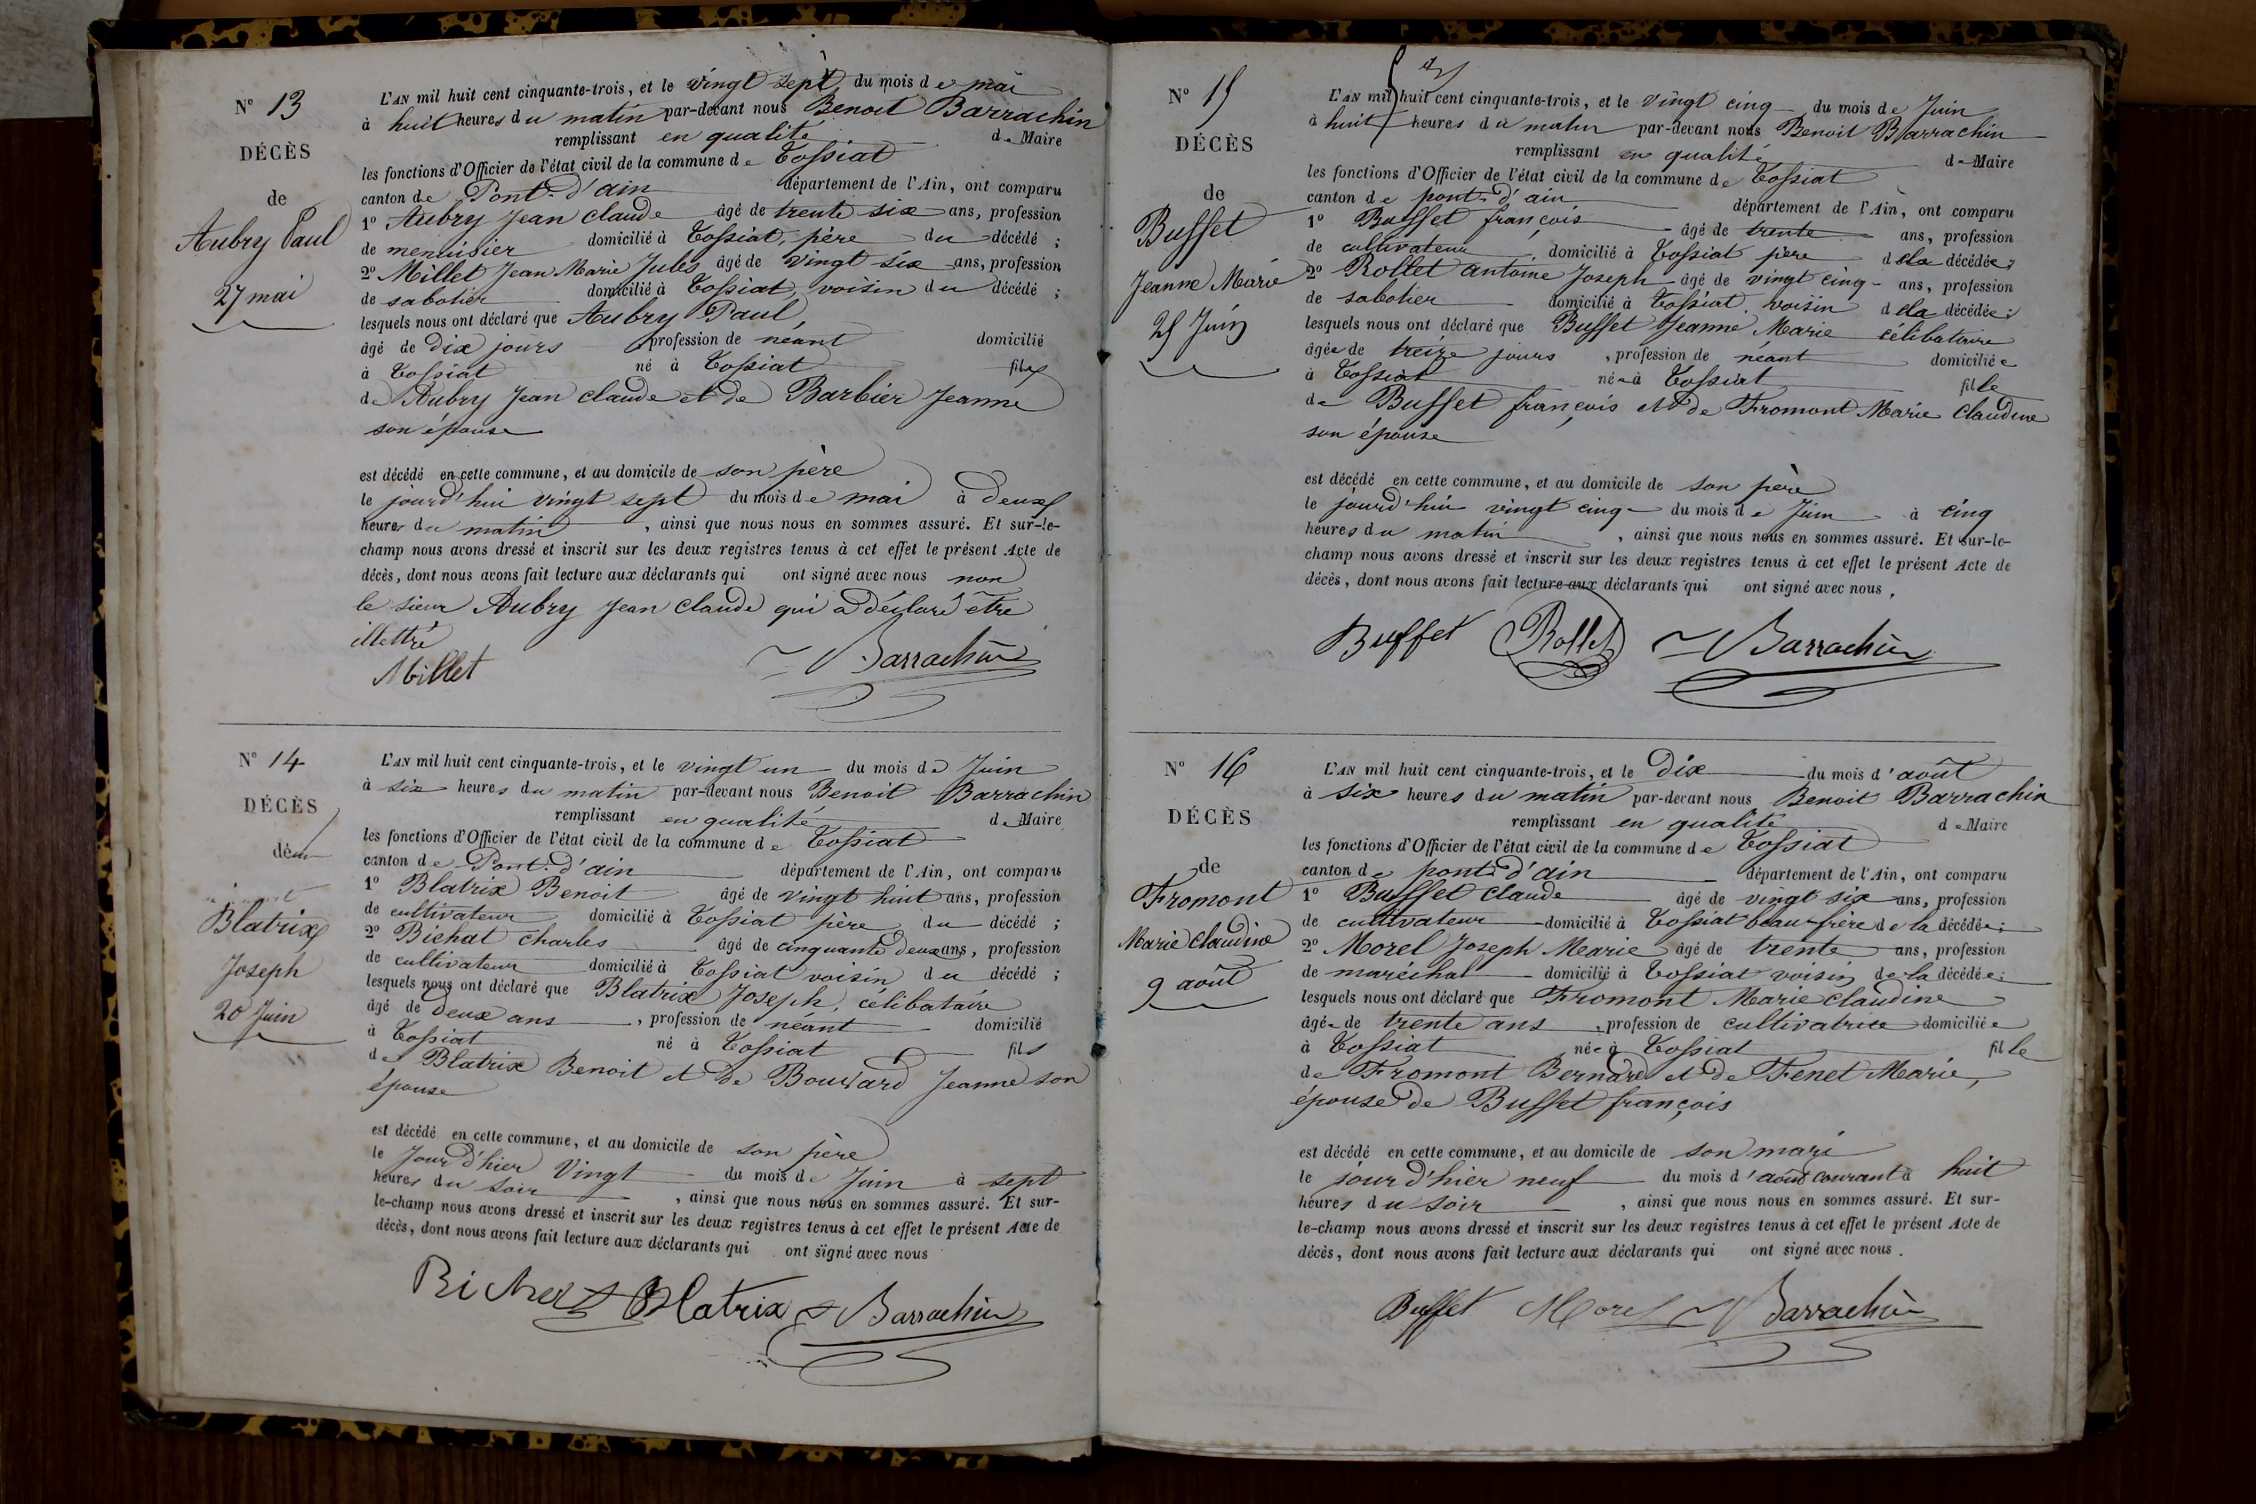 Nº 13
DÉCÈS
de
Aubry Paul
27 mai
L'AN mil huit cent cinquante-trois, et le vingt sept du mois de mai
à huit heures du matin par-devant nous Benoit Barrachin
remplissant en qualité de Maire
les fonctions d'Officier de l'état civil de la commune de Tossiat
canton de Pont-d'ain département de l'Ain, ont comparu
1º Aubry Jean claude âgé de trente six ans, profession
de menuisier domicilié à Tossiat, père du décédé ;
2º Millet Jean Marie Jules âgé de vingt six ans, profession
de sabotier domicilié à Tossiat, voisin du décédé ;
lesquels nous ont déclaré que Aubry Paul,
âgé de dix jours profession de néant domicilié
à Tossiat né à Tossiat fils
de Aubry Jean claude et de Barbier Jeanne
son épouse
est décédé en cette commune, et au domicile de son père
le jourd'hui vingt sept du mois de mai à deux
heures du matin, ainsi que nous nous en sommes assuré. Et sur-le-
champ nous avons dressé et inscrit sur les deux registres tenus à cet effet le présent Acte de
décès, dont nous avons fait lecture aux déclarants qui ont signé avec nous non
le sieur Aubry Jean claude qui a déclaré être
illettré
Millet Barrachin
Nº 14
DÉCÈS
de
Blatrix
Joseph
20 Juin
L'AN mil huit cent cinquante-trois, et le vingt un du mois de Juin
à six heures du matin par-devant nous Benoit Barrachin
remplissant en qualité de Maire
les fonctions d'Officier de l'état civil de la commune de Tossiat
canton de Pont-d'ain département de l'Ain, ont comparu
1º Blatrix Benoit âgé de vingt huit ans, profession
de cultivateur domicilié à Tossiat père du décédé ;
2º Bichat charles âgé de cinquante deux ans, profession
de cultivateur domicilié à Tossiat voisin du décédé ;
lesquels nous ont déclaré que Blatrix Joseph, célibataire
âgé de deux ans, profession de néant domicilié
à Tossiat né à Tossiat fils
de Blatrix Benoit et de Bouvard Jeanne son
épouse
est décédé en cette commune, et au domicile de son père
le Jour d'hier vingt du mois de Juin à sept
heures du soir, ainsi que nous nous en sommes assuré. Et sur-
le-champ nous avons dressé et inscrit sur les deux registres tenus à cet effet le présent Acte de
décès, dont nous avons fait lecture aux déclarants qui ont signé avec nous
Bichat Blatrix Barrachin
Nº 15
DÉCÈS
de
Buffet
Jeanne Marie
25 Juin
L'AN mil huit cent cinquante-trois, et le vingt cinq du mois de Juin
à huit heures du matin par-devant nous Benoit Barrachin
remplissant en qualité de Maire
les fonctions d'Officier de l'état civil de la commune de Tossiat
canton de pont-d'ain département de l'Ain, ont comparu
1º Buffet françois âgé de trente ans, profession
de cultivateur domicilié à Tossiat père de la décédée ;
2º Rollet antoine Joseph âgé de vingt cinq ans, profession
de sabotier domicilié à Tossiat voisin de la décédée ;
lesquels nous ont déclaré que Buffet Jeanne Marie célibataire
âgée de treize jours, profession de néant domiciliée
à Tossiat née à Tossiat fille
de Buffet françois et de Fromont Marie Claudine
son épouse
est décédé en cette commune, et au domicile de son père
le jourd'hui vingt cinq du mois de Juin à cinq
heures du matin, ainsi que nous nous en sommes assuré. Et sur-le-
champ nous avons dressé et inscrit sur les deux registres tenus à cet effet le présent Acte de
décès, dont nous avons fait lecture aux déclarants qui ont signé avec nous.
Buffet Rollet Barrachin
Nº 16
DÉCÈS
de
Fromont
Marie claudine
9 août
L'AN mil huit cent cinquante-trois, et le dix du mois d'août
à six heures du matin par-devant nous Benoit Barrachin
remplissant en qualité de Maire
les fonctions d'Officier de l'état civil de la commune de Tossiat
canton de pont-d'ain département de l'Ain, ont comparu
1º Buffet Claude âgé de vingt six ans, profession
de cultivateur domicilié à Tossiat beau-frère de la décédée ;
2º Morel Joseph Marie âgé de trente ans, profession
de maréchal domicilié à Tossiat voisin de la décédée ;
lesquels nous ont déclaré que Fromont Marie claudine
âgée de trente ans, profession de cultivatrice domiciliée
à Tossiat née à Tossiat fille
de Fromont Bernard et de Fenet Marie,
épouse de Buffet françois
est décédé en cette commune, et au domicile de son mari
le jour d'hier neuf du mois d'août courant à huit
heures du soir, ainsi que nous nous en sommes assuré. Et sur-
le-champ nous avons dressé et inscrit sur les deux registres tenus à cet effet le présent Acte de
décès, dont nous avons fait lecture aux déclarants qui ont signé avec nous.
Buffet Morel Barrachin